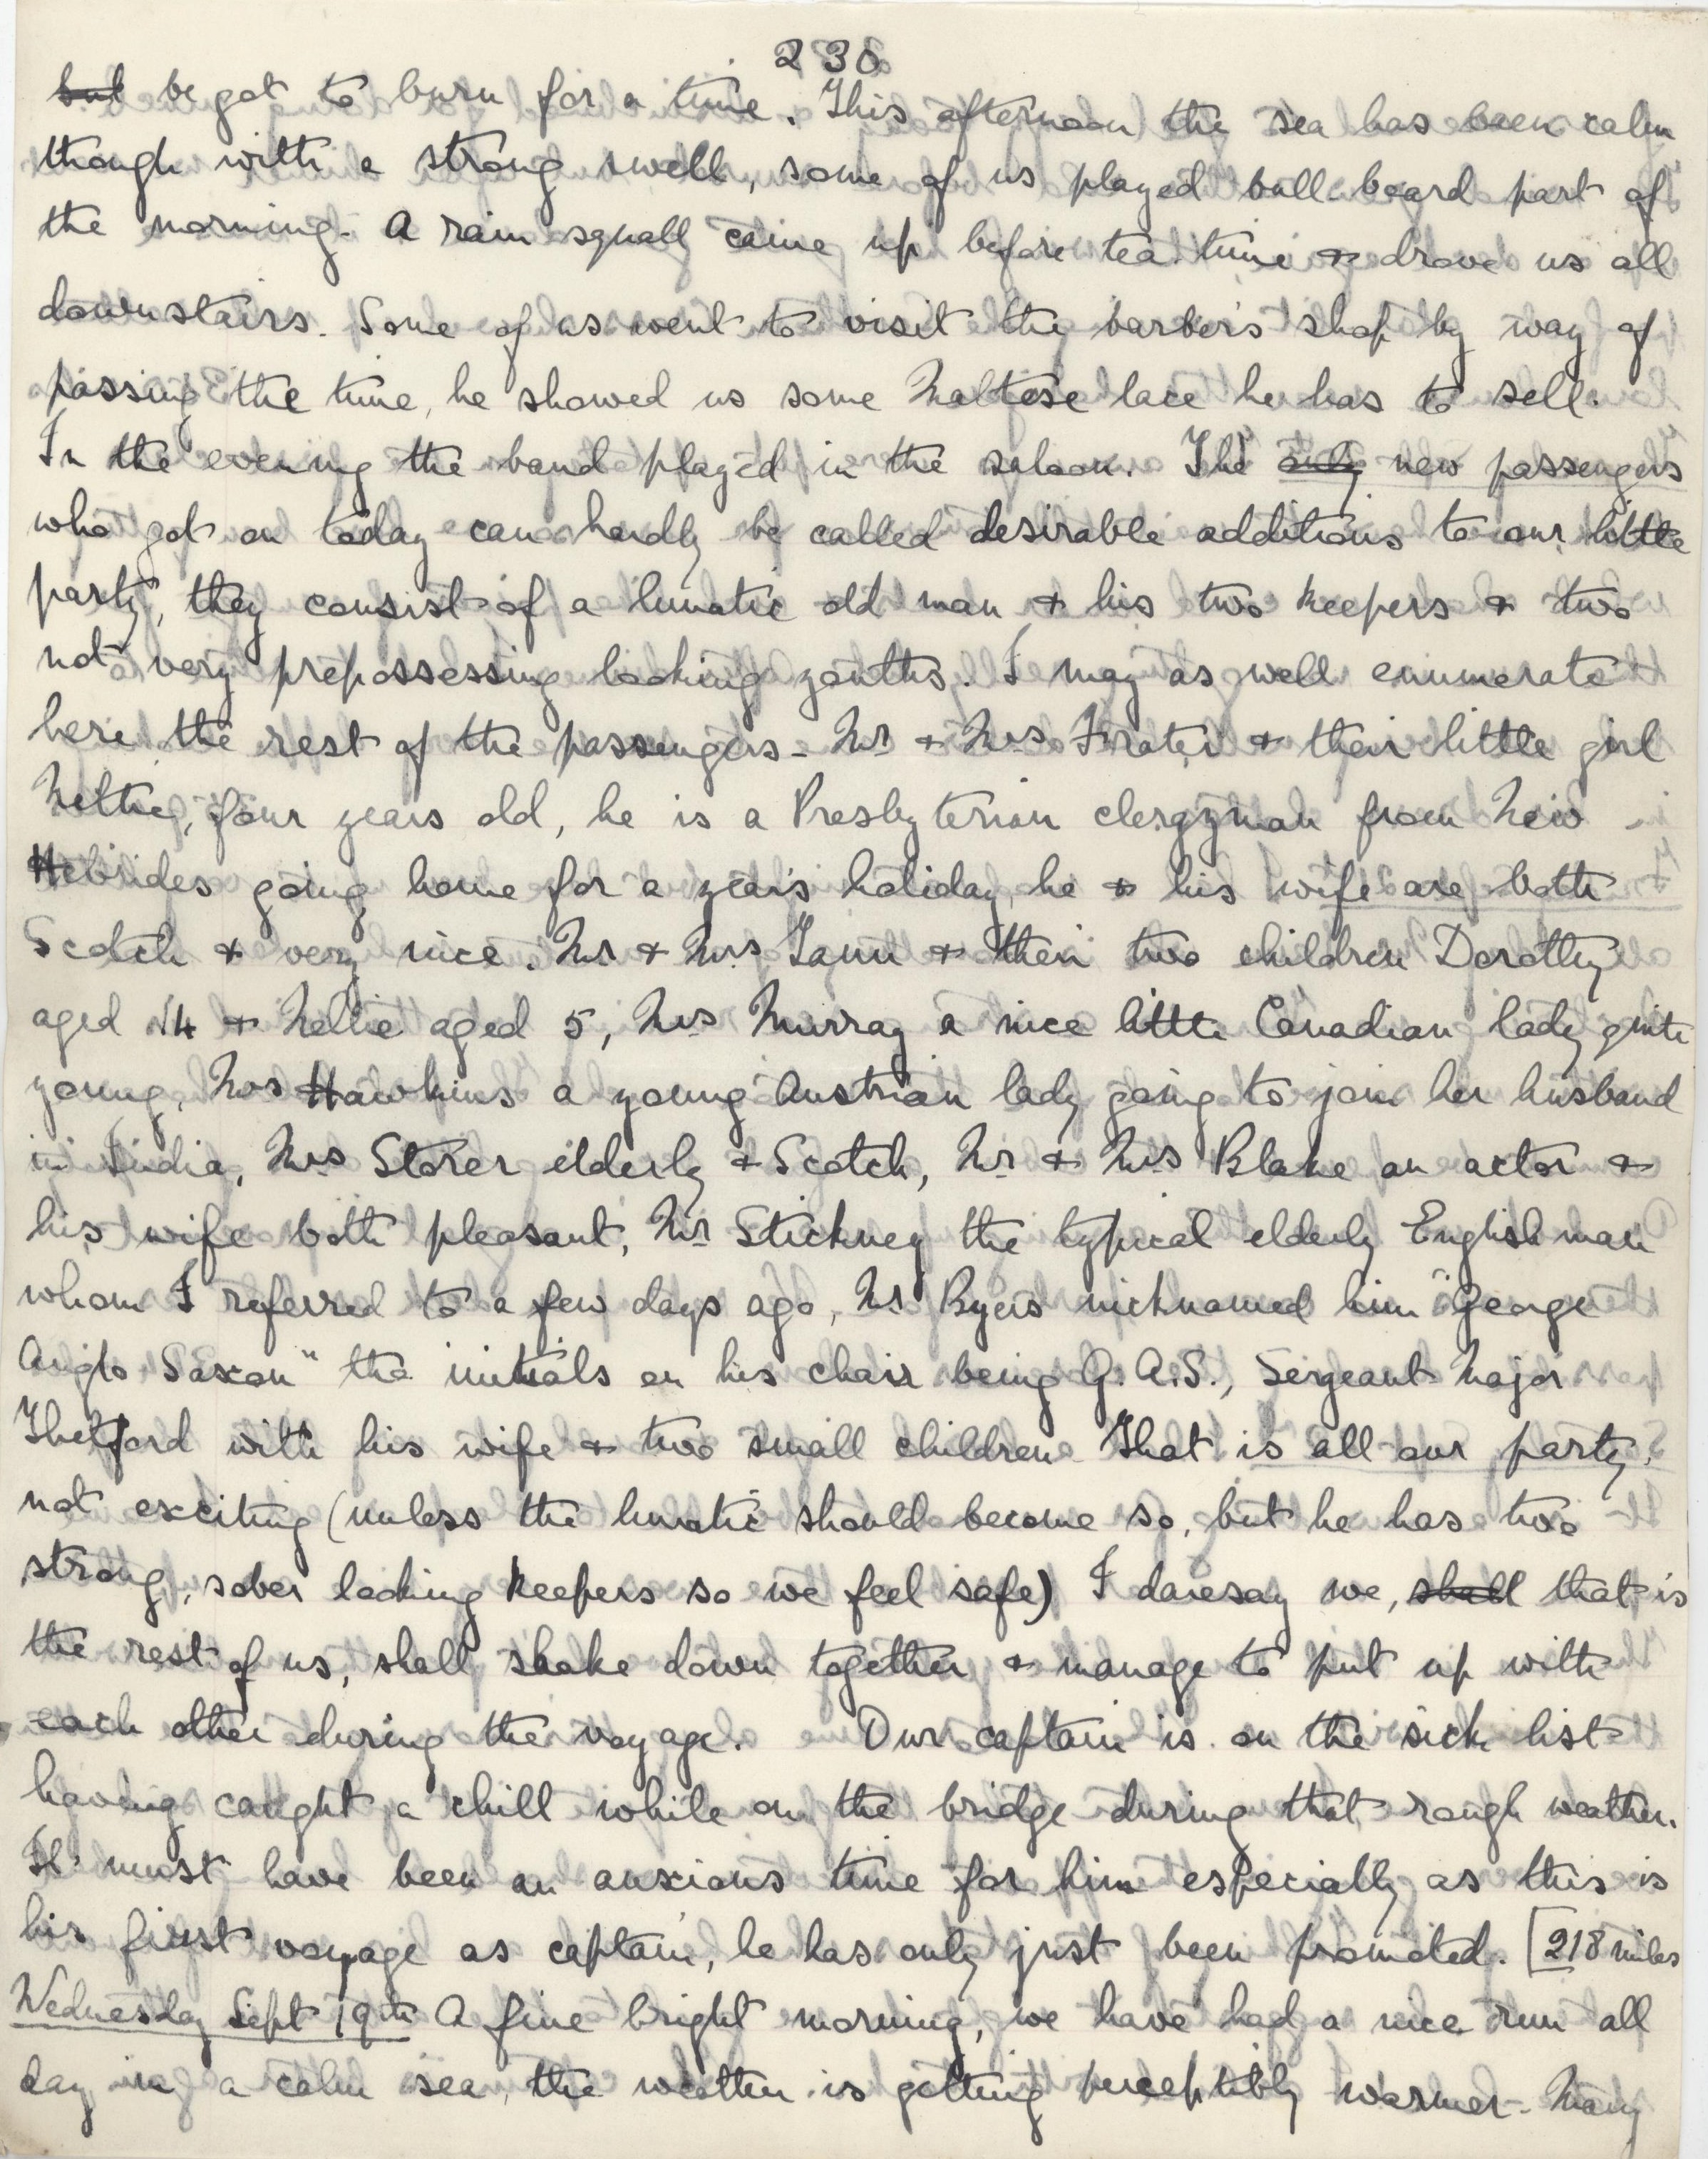 230
~~but~~ be got to burn for a time. This afternoon the sea has been calm
though with a strong swell, some of us played bull-board part of
the morning. A rain squall came up before tea time & drove us all
downstairs. Some of us went to visit the barber's shop by way of
passing the time, he showed us some Maltese lace he has to sell.
In the evening the band played in the saloon. The ~~only~~ new passengers
who got on today can hardly be called desirable additions to our little
party, they consist of a lunatic old man & his two keepers & two
not very prepossessing looking youths. I may as well enumerate
here the rest of the passengers - Mr & Mrs Frater & their little girl
Nettie, four years old, he is a Presbyterian clergyman from New
Hebrides going home for a year's holiday, he & his wife are both
Scotch & very nice. Mr & Mrs Tann & their two children Dorothy
aged 14 & Nellie aged 5, Mrs Murray a nice little Canadian lady quite
young, Mrs Hawkins a young Austrian lady going to join her husband
in India, Mrs Storer elderly & Scotch, Mr & Mrs Blake an actor &
his wife both pleasant, Mr Stickney the typical elderly Englishman
whom I referred to a few days ago, Mr Byers nicknamed him "George
Anglo Saxon" the initials on his chair being G.A.S., Sergeant Major
Thetford with his wife & two small children. That is all our party,
not exciting (unless the lunatic should become so, but he has two
strong, sober looking keepers so we feel safe) I daresay we, ~~shall~~ that is
the rest of us, shall shake down together & manage to put up with
each other during the voyage. Our captain is on the sick list
having caught a chill while on the bridge during that rough weather.
It must have been an anxious time for him especially as this is
his first voyage as captain, he has only just been promoted. [218 miles
Wednesday Sept 19th A fine bright morning, we have had a nice run all
day in a calm sea, the weather is getting perceptibly warmer - Many